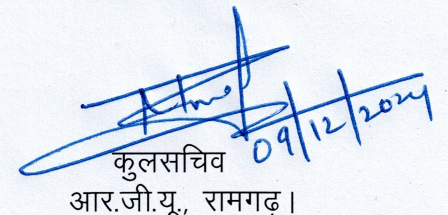 09/12/2024
कुलसचिव
आर.जी.यू., रामगढ़।